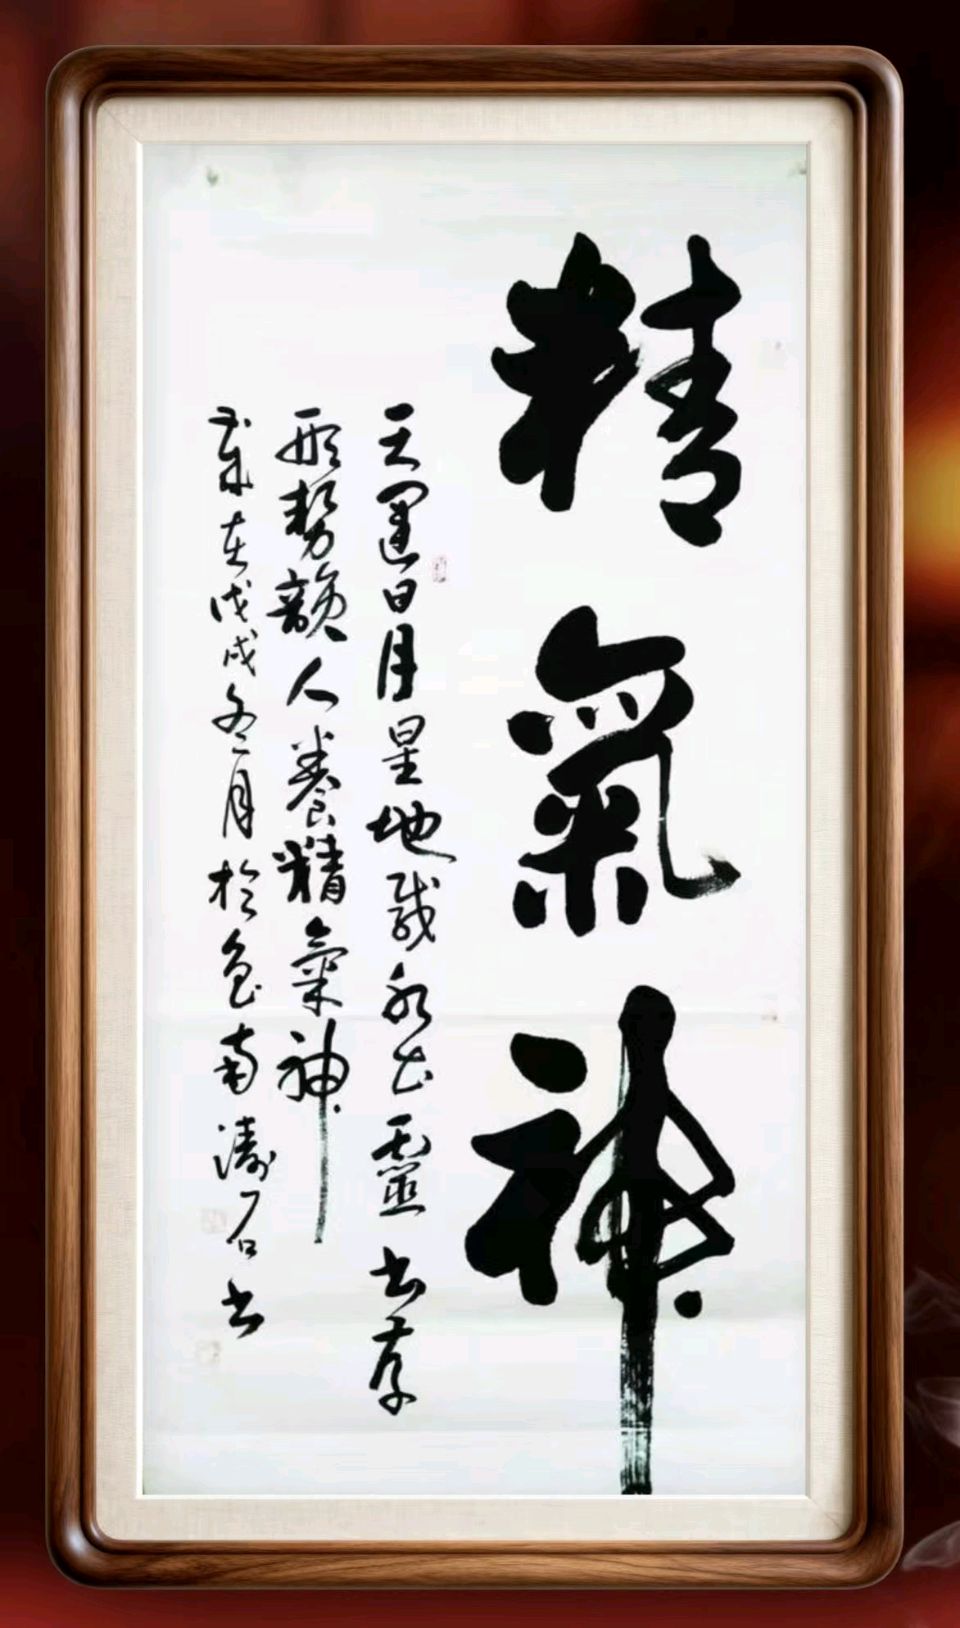 精氣神
天運日月星地載水土靈書存
形勢韻人養精氣神
歲在戊戌冬月於魯南濤石書